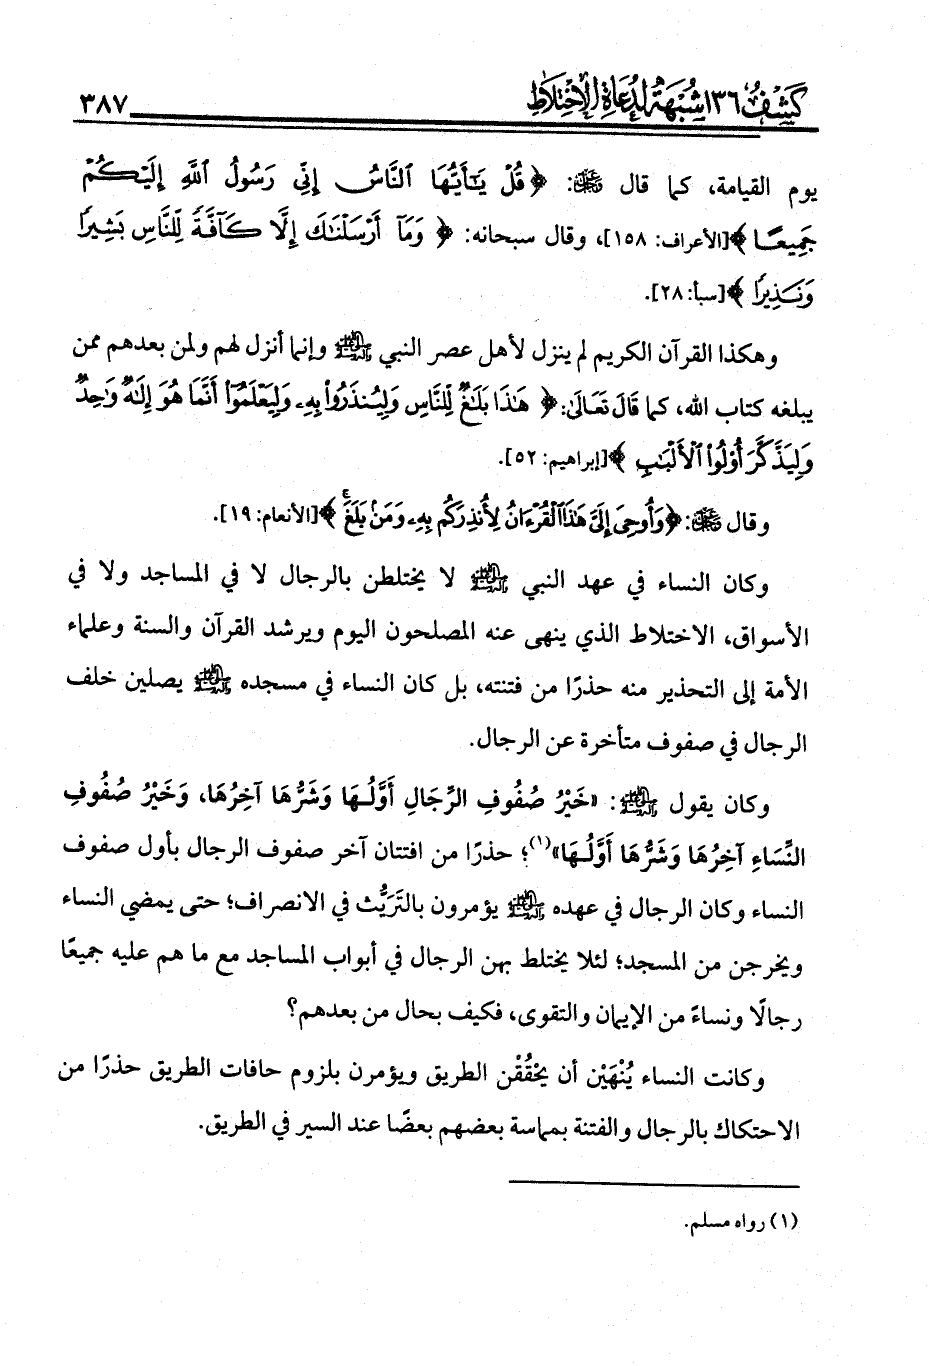 كَشْفُ ١٣٦ شُبْهَةً لِدُعَاةِ الاِخْتِلَاطِ ٣٨٧
يوم القيامة، كما قال ﷻ: ﴿ قُلْ يَٰٓأَيُّهَا ٱلنَّاسُ إِنِّي رَسُولُ ٱللَّهِ إِلَيْكُمْ
جَمِيعًا ﴾[الأعراف: ١٥٨]، وقال سبحانه: ﴿ وَمَآ أَرْسَلْنَٰكَ إِلَّا كَآفَّةً لِّلنَّاسِ بَشِيرًا
وَنَذِيرًا ﴾[سبأ: ٢٨].
وهكذا القرآن الكريم لم ينزل لأهل عصر النبي ﷺ وإنما أنزل لهم ولمن بعدهم ممن
يبلغه كتاب الله، كما قَالَ تَعَالَىٰ: ﴿ هَٰذَا بَلَٰغٌ لِّلنَّاسِ وَلِيُنذَرُوا۟ بِهِۦ وَلِيَعْلَمُوٓا۟ أَنَّمَا هُوَ إِلَٰهٌ وَٰحِدٌ
وَلِيَذَّكَّرَ أُو۟لُوا۟ ٱلْأَلْبَٰبِ ﴾[إبراهيم: ٥٢].
وقال ﷻ: ﴿وَأُوحِىَ إِلَىَّ هَٰذَا ٱلْقُرْءَانُ لِأُنذِرَكُم بِهِۦ وَمَنۢ بَلَغَ ۚ ﴾[الأنعام: ١٩].
وكان النساء في عهد النبي ﷺ لا يختلطن بالرجال لا في المساجد ولا في
الأسواق، الاختلاط الذي ينهى عنه المصلحون اليوم ويرشد القرآن والسنة وعلماء
الأمة إلى التحذير منه حذرًا من فتنته، بل كان النساء في مسجده ﷺ يصلين خلف
الرجال في صفوف متأخرة عن الرجال.
وكان يقول ﷺ: «خَيْرُ صُفُوفِ الرِّجَالِ أَوَّلُهَا وَشَرُّهَا آخِرُهَا، وَخَيْرُ صُفُوفِ
النِّسَاءِ آخِرُهَا وَشَرُّهَا أَوَّلُهَا»(١)؛ حذرًا من افتتان آخر صفوف الرجال بأول صفوف
النساء وكان الرجال في عهده ﷺ يؤمرون بالتَرَيُّث في الانصراف؛ حتى يمضي النساء
ويخرجن من المسجد؛ لئلا يختلط بهن الرجال في أبواب المساجد مع ما هم عليه جميعًا
رجالًا ونساءً من الإيمان والتقوى، فكيف بحال من بعدهم؟
وكانت النساء يُنْهَيْن أن يَحْقُقْن الطريق ويؤمرن بلزوم حافات الطريق حذرًا من
الاحتكاك بالرجال والفتنة بمماسة بعضهم بعضًا عند السير في الطريق.
(١) رواه مسلم.